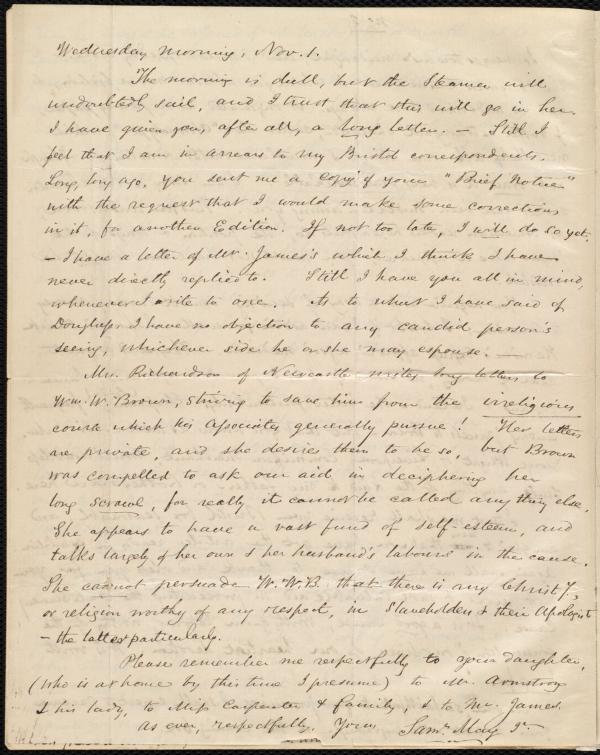 Wednesday morning, Nov. 1.
The morning is dull, but the Steamer will
undoubtedly sail, and I trust that this will go in her.
I have given you, after all, a long letter. — Still I
feel that I am in arrears to my Bristol correspondents.
Long, long ago, you sent me a copy of your "Brief Notice"
with the request that I would make some corrections
in it, for another Edition. If not too late, I will do so yet.
— I have a letter of Mr. James's which I think I have
never directly replied to. Still I have you all in mind,
whenever I write to one. As to what I have said of
Douglass, I have no objection to any candid person's
seeing, whichever side he or she may espouse. —
Mrs. Richardson of Newcastle writes long letters to
Wm. W. Brown, striving to save him from the irreligious
course which his associates generally pursue! Her letters
are private, and she desires them to be so, but Brown
was compelled to ask our aid in deciphering her
long scrawl, for really it cannot be called any thing else.
She appears to have a vast fund of self-esteem, and
talks largely of her own & her husband's labours in the cause.
She cannot persuade W. W. B. that there is any Christy,
or religion worthy of any respect, in Slaveholders & their Apologists
— the latter particularly.
Please remember me respectfully to your daughter,
(who is at home by this time I presume) to Mr. Armstrong
& his lady, to Miss Carpenter & family, & to Mr. James.
As ever, respectfully, Yours Saml. May Jr.